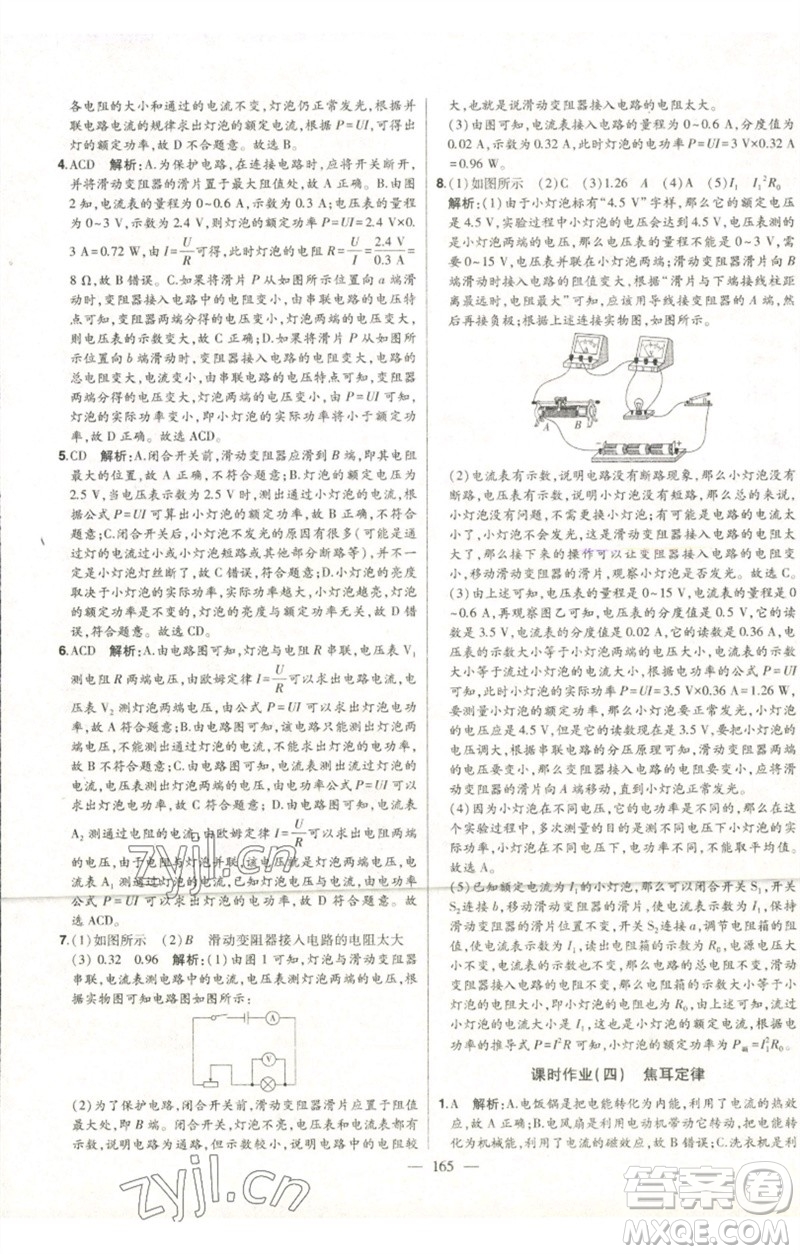 各电阻的大小和通过的电流不变,灯泡仍正常发光,根据并
联电路电流的规律求出灯泡的额定电流,利用 P=UI,可得出
灯的额定功率。故 D 不合题意。故选 B。
4. ACD 解析:A.为保护电路,在连接电路时,应将开关断开,
并将滑动变阻器的滑片置于最大阻值处,故 A 正确。B.由图
2 知,电流表的量程为 0~0.6 A,示数为 0.3 A;电压表的量程
为 0~3 V,示数为 2.4 V,则灯泡的额定功率 P=UI=2.4 V×0.
3 A=0.72 W,由 I=U/R可知,此时灯泡的电阻 R=U/I=2.4 V/0.3 A=
8 Ω,故 B 错误。C.如果将滑片 P 从图示位置向 a 端滑
动时,变阻器接入电路中的电阻变小,由串联电路的电压特
点可知,变阻器两端分得的电压变小,小灯泡两端的电压变大,
则电压表的示数变大,故 C 正确;D.如果将滑片 P 从图
示位置向 b 端滑动时,变阻器接入电路中的电阻变大,电路的
总电阻变大,电流变小,由串联电路的电压特点可知,变阻器
两端分得的电压变大,灯泡两端的电压变小,根据 P=UI 可
知,灯泡的实际功率变小,即小灯泡的实际功率将小于额定功
率,故 D 正确。故选 ACD。
5. CD 解析:A.闭合开关前,滑动变阻器应滑到 B 端,即其电阻
最大的位置,故 A 正确,不符合题意;B.灯泡的额定电压为
2.5 V,当电压表示数为 2.5 V 时,测出通过小灯泡的电流,根
据公式 P=UI 可得小灯泡的额定功率,故 B 正确,不符合题
意;C.闭合开关后,小灯泡不发光的原因有很多(可能是通
过灯的电流太小或小灯泡短路或其他部分断路等),不一定
是小灯泡灯丝断了,故 C 错误,符合题意;D.小灯泡的亮度
取决于小灯泡的实际功率,实际功率越大,小灯泡越亮,灯泡的
额定功率是不变的,灯泡的亮度与额定功率无关,故 D 错
误,符合题意。故选 CD。
6. ACD 解析:A.由电路图可知,灯泡与电阻 R 串联,电压表 V₁
测电阻 R 两端电压,由欧姆定律 I=U/R可以求出电路电流,电
压表 V₂ 测灯泡两端电压,由 P=UI 可以求出灯泡的电功
率,故 A 符合题意;B.由图示电路可知,该电路只能测出灯泡
两端电压,不能测出通过灯泡的电流,不能测出灯泡电功率,
故 B 不符合题意;C.由电路图可知,灯泡与电阻串联,电流表
测电路电流,电压表测灯泡两端电压,由 P=UI 可以求出灯
泡电功率,故 C 符合题意;D.由电路图可知,灯泡与电阻并联,电流表
A₂ 测通过电阻的电流,由欧姆定律 I=U/R可以求出电阻两端的
电压,电阻与灯泡并联,该电压就是灯泡两端电压,电流
表 A₁ 测通过灯泡的电流,由 P=UI 可以求出灯泡电功率,
故选 ACD。
7. (1)如图所示 (2)B 滑动变阻器接入电路的电阻太大
(3)0.32 0.96 解析:(1)由图 1 可知,灯泡与滑动变阻器
串联,电流表测电路中的电流,电压表测灯泡两端的电压,根
据实物图可知电路图如图所示。
A
V
(2)为了保护电路,闭合开关前,滑动变阻器接入电路的电阻
最大处,即 B 端。闭合开关,灯泡不亮,电流表和电压表均有
示数,说明电路为通路,但示数较小,说明电路中的电阻较
大,也就是说滑动变阻器接入电路的电阻太大。
(3)由图可知,电流表接入电路的量程为 0~0.6 A,分度值为
0.02 A,示数为 0.32 A,此时灯泡的功率 P=UI=3 V×0.32 A
=0.96 W。
8. (1)如图所示 (2)C (3)1.26 A (4)A (5)I₁ I₁²R₀
解析:(1)由于小灯泡标有“4.5 V”字样,那么灯泡的额定电压
是 4.5 V,实验过程中小灯泡的电压会达到 4.5 V,电压表测的
是小灯泡两端的电压,那么电压表的量程不能选 0~3 V,需
要选 0~15 V,电压表并联在小灯泡两端;滑动变阻器滑片向 B
端滑动时接入电路的阻值变大,根据“滑片与下端接线柱距
离最远电阻变大”可知,应该用导线接变阻器的 A 端,然
后再接负极;根据上述连接实物图,如图所示。
A B
(2)电流表有示数,说明电路没有断路现象,那么小灯泡没有
断路,电压表有示数,那么小灯泡没有短路,那么总的来说,
小灯泡没有坏,不需要更换小灯泡;电流表有示数,但电流太
小了,小灯泡不会发光,这是滑动变阻器接入电路的电阻太
大了,那么接下来的操作可以让变阻器接入电路的电阻变
小,移动滑动变阻器的滑片,观察小灯泡是否发光。故选 C。
(3)上述可知,电压表的量程是 0~15 V,电流表的量程是 0
~0.6 A,再观察图乙可知,电压表的分度值是 0.5 V,它的读
数是 3.5 V,电流表的分度值是 0.02 A,它的读数是 0.36 A,
电压表的示数大于电流表的示数,那么根据电功率的公式 P=UI
可知,此时小灯泡的功率 P=UI=3.5 V×0.36 A=1.26 W。
要测量小灯泡的额定功率,那么需要将小灯泡两端的
电压调大,根据串联电路的分压原理可知,滑动变阻器两端
的电压变小,那么滑动变阻器接入电路的电阻要变小,滑动
变阻器的滑片向 A 端移动,直到小灯泡正常发光。
(4)因为小灯泡在不同电压下,它的电功率是不一样的,那么
这个实验过程中,课本的实验目的是测量不同电压下的功率。
故选 A。
(5)已知额定电流为 I₁ 的小灯泡,那么可以闭合开关 S₁,开关
S₂接 b,移动滑动变阻器的滑片,使电流表示数为 I₁,此时小灯
泡正常发光;然后开关 S₂接 a,调节电阻箱的阻
值,使电流表示数仍为 I₁,读出电阻箱的示数 R₀,电源电压大
小不变,电路的电流不变,那么电路的总电阻不变,滑动变
阻器的电阻不变,那么小灯泡的电阻也为 R₀,小灯泡正常
发光时的电流大小是 I₁,这时小灯泡的功率根据电功
率的推导式 P=I²R 可知,小灯泡的额定功率为 P额=I₁²R₀。
课时作业(四) 焦耳定律
1. A 解析:A.电饭锅是把电能转化为内能,利用了电流的热效
应,故 A 符合题意;B.电风扇是利用电动机带动它转动,把电能转
化为机械能,利用了电流的磁效应,故 B 错误;C.洗衣机是利
165
zyjl.cn
zyjl.cn
答案圈
MXQE.COM